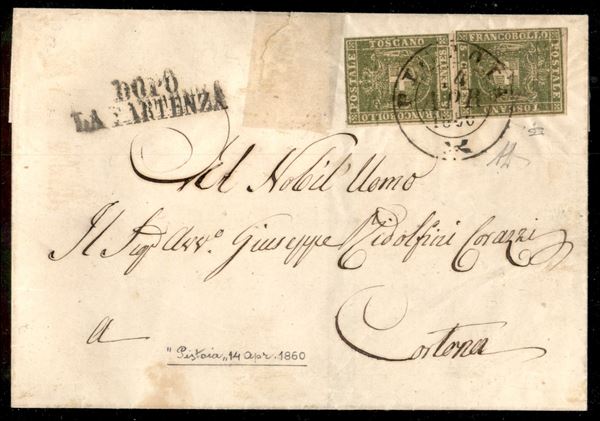 DOPO
LA PARTENZA
FRANCOBOLLO
POSTALE
TOSCANO
5 CENTES
FRANCOBOLLO
POSTALE
TOSCANO
APR
1860
Al Nobil' Uomo
Il Sigr Avvo. Giuseppe Ridolfini Corazzi
a
Cortona
"Pistoia„ 14 apr. 1860